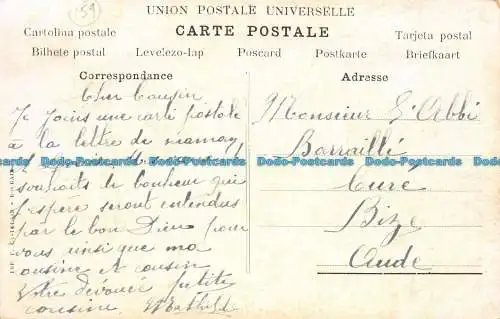 59
UNION POSTALE UNIVERSELLE
Cartolina postale CARTE POSTALE Tarjeta postal
Bilhete postal Levelezo-lap Postcard Postkarte Briefkaart
Correspondance
Cher Cousin
Je joins une carte postale
à la lettre de maman
souhaits de bonheur qui
j'espère seront entendus
par le bon Dieu pour
vous ainsi que ma
cousine et cousin
Votre dévouée petite
cousine Mathilde
Adresse
Monsieur L'Abbé
Barraillé
Curé
Bize
Aude
Dodo-Postcards Dodo-Postcards Dodo-Postcards Dodo-Postcards